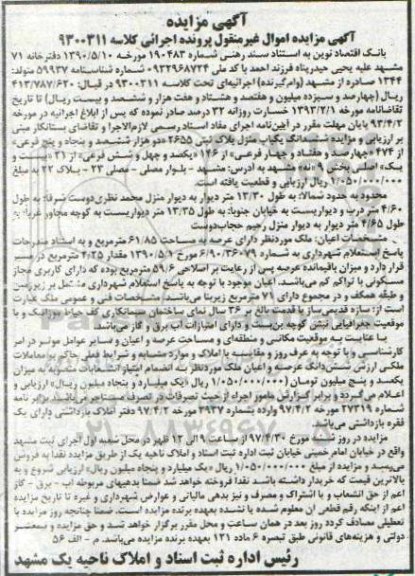 آگهی مزایده
آگهی مزایده اموال غیرمنقول پرونده اجرائی کلاسه ۹۳۰۰۳۱۱
بانک اقتصاد نوین به استناد سند رهنی شماره ۱۹۰۴۸۳ مورخه ۱۳۹۰/۵/۱۰ دفترخانه ۷۱
مشهد علیه یحیی حیدرپناه فرزند احمد با کد ملی ۰۹۳۲۹۶۸۷۲۴ شماره شناسنامه ۵۹۹۳۷ متولد:
۱۳۴۴ صادره از مشهد (وام‌گیرنده) اجرائیه‌ای تحت کلاسه ۹۳۰۰۳۱۱ در قبال: ۴۱۳/۷۸۷/۶۲۰
ریال (چهارصد و سیزده میلیون و هفتصد و هشتاد و هفت هزار و ششصد و بیست ریال) تا تاریخ
تقاضانامه ۱۳۹۳/۲/۱ مابه‌التفاوت خسارت روزانه ۳۲ درصد صادر نموده که پس از ابلاغ اجرائیه در مورخه
۹۳/۴/۲ پایان مهلت مقرر در آئین‌نامه اجرای مفاد اسناد رسمی لازم‌الاجرا و تقاضای بستانکار مبنی
بر ارزیابی و مزایده: ششدانگ یکباب منزل پلاک ثبتی ۲۶۵۵ «دو هزار ششصد و پنجاه و پنج فرعی»
از ۴۷۴ «چهارصد و هفتاد و چهار فرعی» از ۱۴۶ «یکصد و چهل و شش فرعی» از ۲۱ «بیست و
یک» اصلی بخش ۹ «نه» مشهد به آدرس: مشهد - بلوار مصلی - مصلی ۲۳ - پلاک ۲۲ به مبلغ
۱/۰۵۰/۰۰۰/۰۰۰ ریال ارزیابی و قطعیت یافته است.
محدود به حدود شمالا: به طول ۱۳/۳۰ متر دیوار به دیوار منزل محمد نظری‌دوست شرقا: به طول
۴/۶۰ متر درب و دیواریست به خیابان جنوبا: به طول ۱۳/۳۵ متر دیواریست به کوچه مجاور غربا: به
طول ۴/۶۵ متر دیوار به دیوار منزل رحیم حجاب‌دوست
مشخصات اعیان: ملک موردنظر دارای عرصه به مساحت ۶۱/۸۵ مترمربع و به استناد مندرجات
پاسخ استعلام شهرداری به شماره ۶/۹۰/۳۶۰۷۹ مورخ ۱۳۹۰/۵/۱ مقدار ۲/۲۵ مترمربع در مسیر
قرار دارد و میزان باقیمانده عرصه پس از رعایت بر اصلاحی ۵۹/۶ مترمربع بوده که دارای کاربری مجاز
مسکونی با تراکم کم می‌باشد. اعیان موجود با توجه به پاسخ استعلام شهرداری مشتمل بر زیرزمین
و طبقه همکف و در مجموع دارای ۷۱ مترمربع زیربنا می‌باشد. مشخصات فنی و عمومی ملک عبارت
است از: سازه قدیمی‌ساز با قدمت بالغ بر ۲۶ سال نمای ساختمان سیمانکاری کف حیاط موزائیک و با
موقعیت جغرافیایی نبش کوچه بن‌بست و دارای امتیازات آب برق و گاز می‌باشد.
با عنایت به موقعیت مکانی و منطقه‌ای و مساحت عرصه و اعیان و سایر عوامل موثر در امر
کارشناسی و با توجه به عرف روز و مقایسه با املاک و موارد مشابه و شرایط فعلی حاکم بر معاملات
ملکی ارزش ششدانگ عرصه و اعیان ملک موردنظر به انضمام امتیاز انشعابات منصوبه به میزان
یکصد و پنج میلیون تومان (۱/۰۵۰/۰۰۰/۰۰۰ ریال «یک میلیارد و پنجاه میلیون ریال») ارزیابی و
اعلام می‌گردد و برابر گزارش مامور اجراء از حیث تصرفات در تصرف مستاجر می‌باشد. برابر نامه
شماره ۲۷۳۱۹ مورخ ۹۷/۴/۲ وارده بشماره ۳۹۳۷ مورخه ۹۷/۴/۲ دفتر املاک بازداشتی دارای یک
فقره بازداشتی می‌باشد.
مزایده در روز شنبه مورخ ۹۷/۴/۳۰ از ساعت ۹ الی ۱۲ ظهر در محل شعبه اول اجرای ثبت مشهد
واقع در خیابان امام خمینی خیابان ثبت اداره ثبت اسناد و املاک ناحیه یک از طریق مزایده نقدا به فروش
می‌رسد و مزایده از مبلغ ۱/۰۵۰/۰۰۰/۰۰۰ ریال «یک میلیارد و پنجاه میلیون ریال» ارزیابی شروع و به
بالاترین قیمت که خریدار داشته باشد نقدا فروخته خواهد شد ضمنا بدهیهای مربوطه آب - برق - گاز
اعم از حق انشعاب و یا اشتراک و مصرف و نیز بدهی مالیاتی و عوارض شهرداری و غیره تا تاریخ مزایده
اعم از اینکه رقم قطعی آن معلوم شده یا نشده بعهده برنده مزایده است. ضمنا چنانچه روز مزایده با
تعطیلی مصادف گردد روز بعد در همان ساعت و محل مقرر برگزار خواهد شد و حق مزایده و نیم‌عشر
دولتی و هزینه‌های قانونی طبق تبصره ۶ ماده ۱۲۱ بعهده برنده مزایده می‌باشد. م - الف ۵۶
رئیس اداره ثبت اسناد و املاک ناحیه یک مشهد